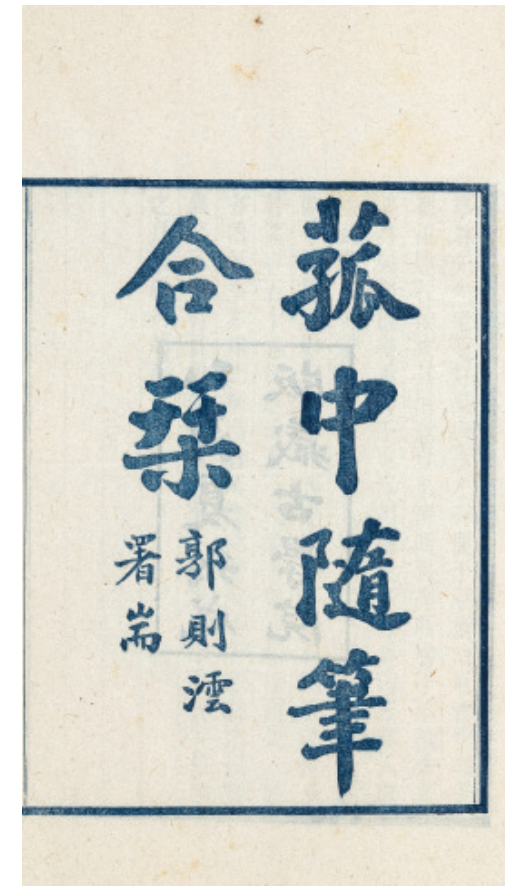 菰中隨筆
合栞
郭則澐
署耑